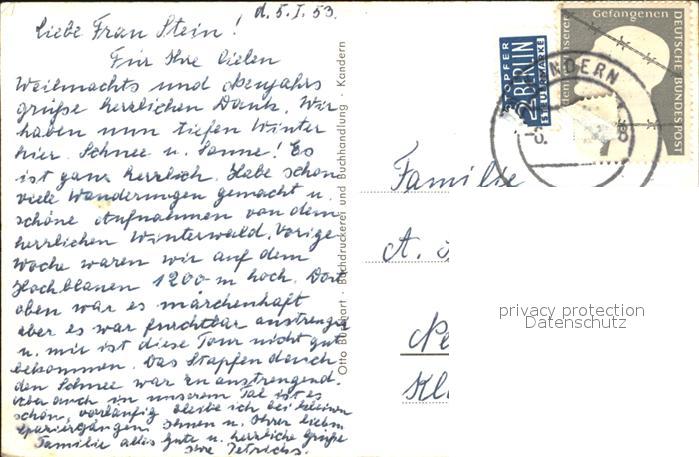 d. 5. I. 53.
Liebe Frau Stein!
Für Ihre lieben
Weihnachts und Neujahrs
grüße herzlichen Dank. Wir
haben nun tiefen Winter
hier. Schnee u. Sonne! Es
ist ganz herrlich. Habe schon
viele Wanderungen gemacht u.
schöne Aufnahmen von dem
herrlichen Winterwald. Vorige
Woche waren wir auf dem
Hochblauen 1200 m hoch. Dort
oben war es märchenhaft
aber es war furchtbar anstrengend
u. mir ist diese Tour nicht gut
bekommen. Das Stapfen durch
den Schnee war zu anstrengend.
Aber auch in unserem Tal ist es
schön, vorläufig bleibe ich bei kleinen
Spaziergängen. Ihnen u. Ihrer lieben
Familie alles Gute u. herzliche Grüße
Ihre
Otto · Buchdruckerei und Buchhandlung · Kandern
NOTOPFER
2 BERLIN
STEUERMARKE
Gefangenen
DEUTSCHE BUNDESPOST
KANDERN
Familie
A.
privacy protection
Datenschutz